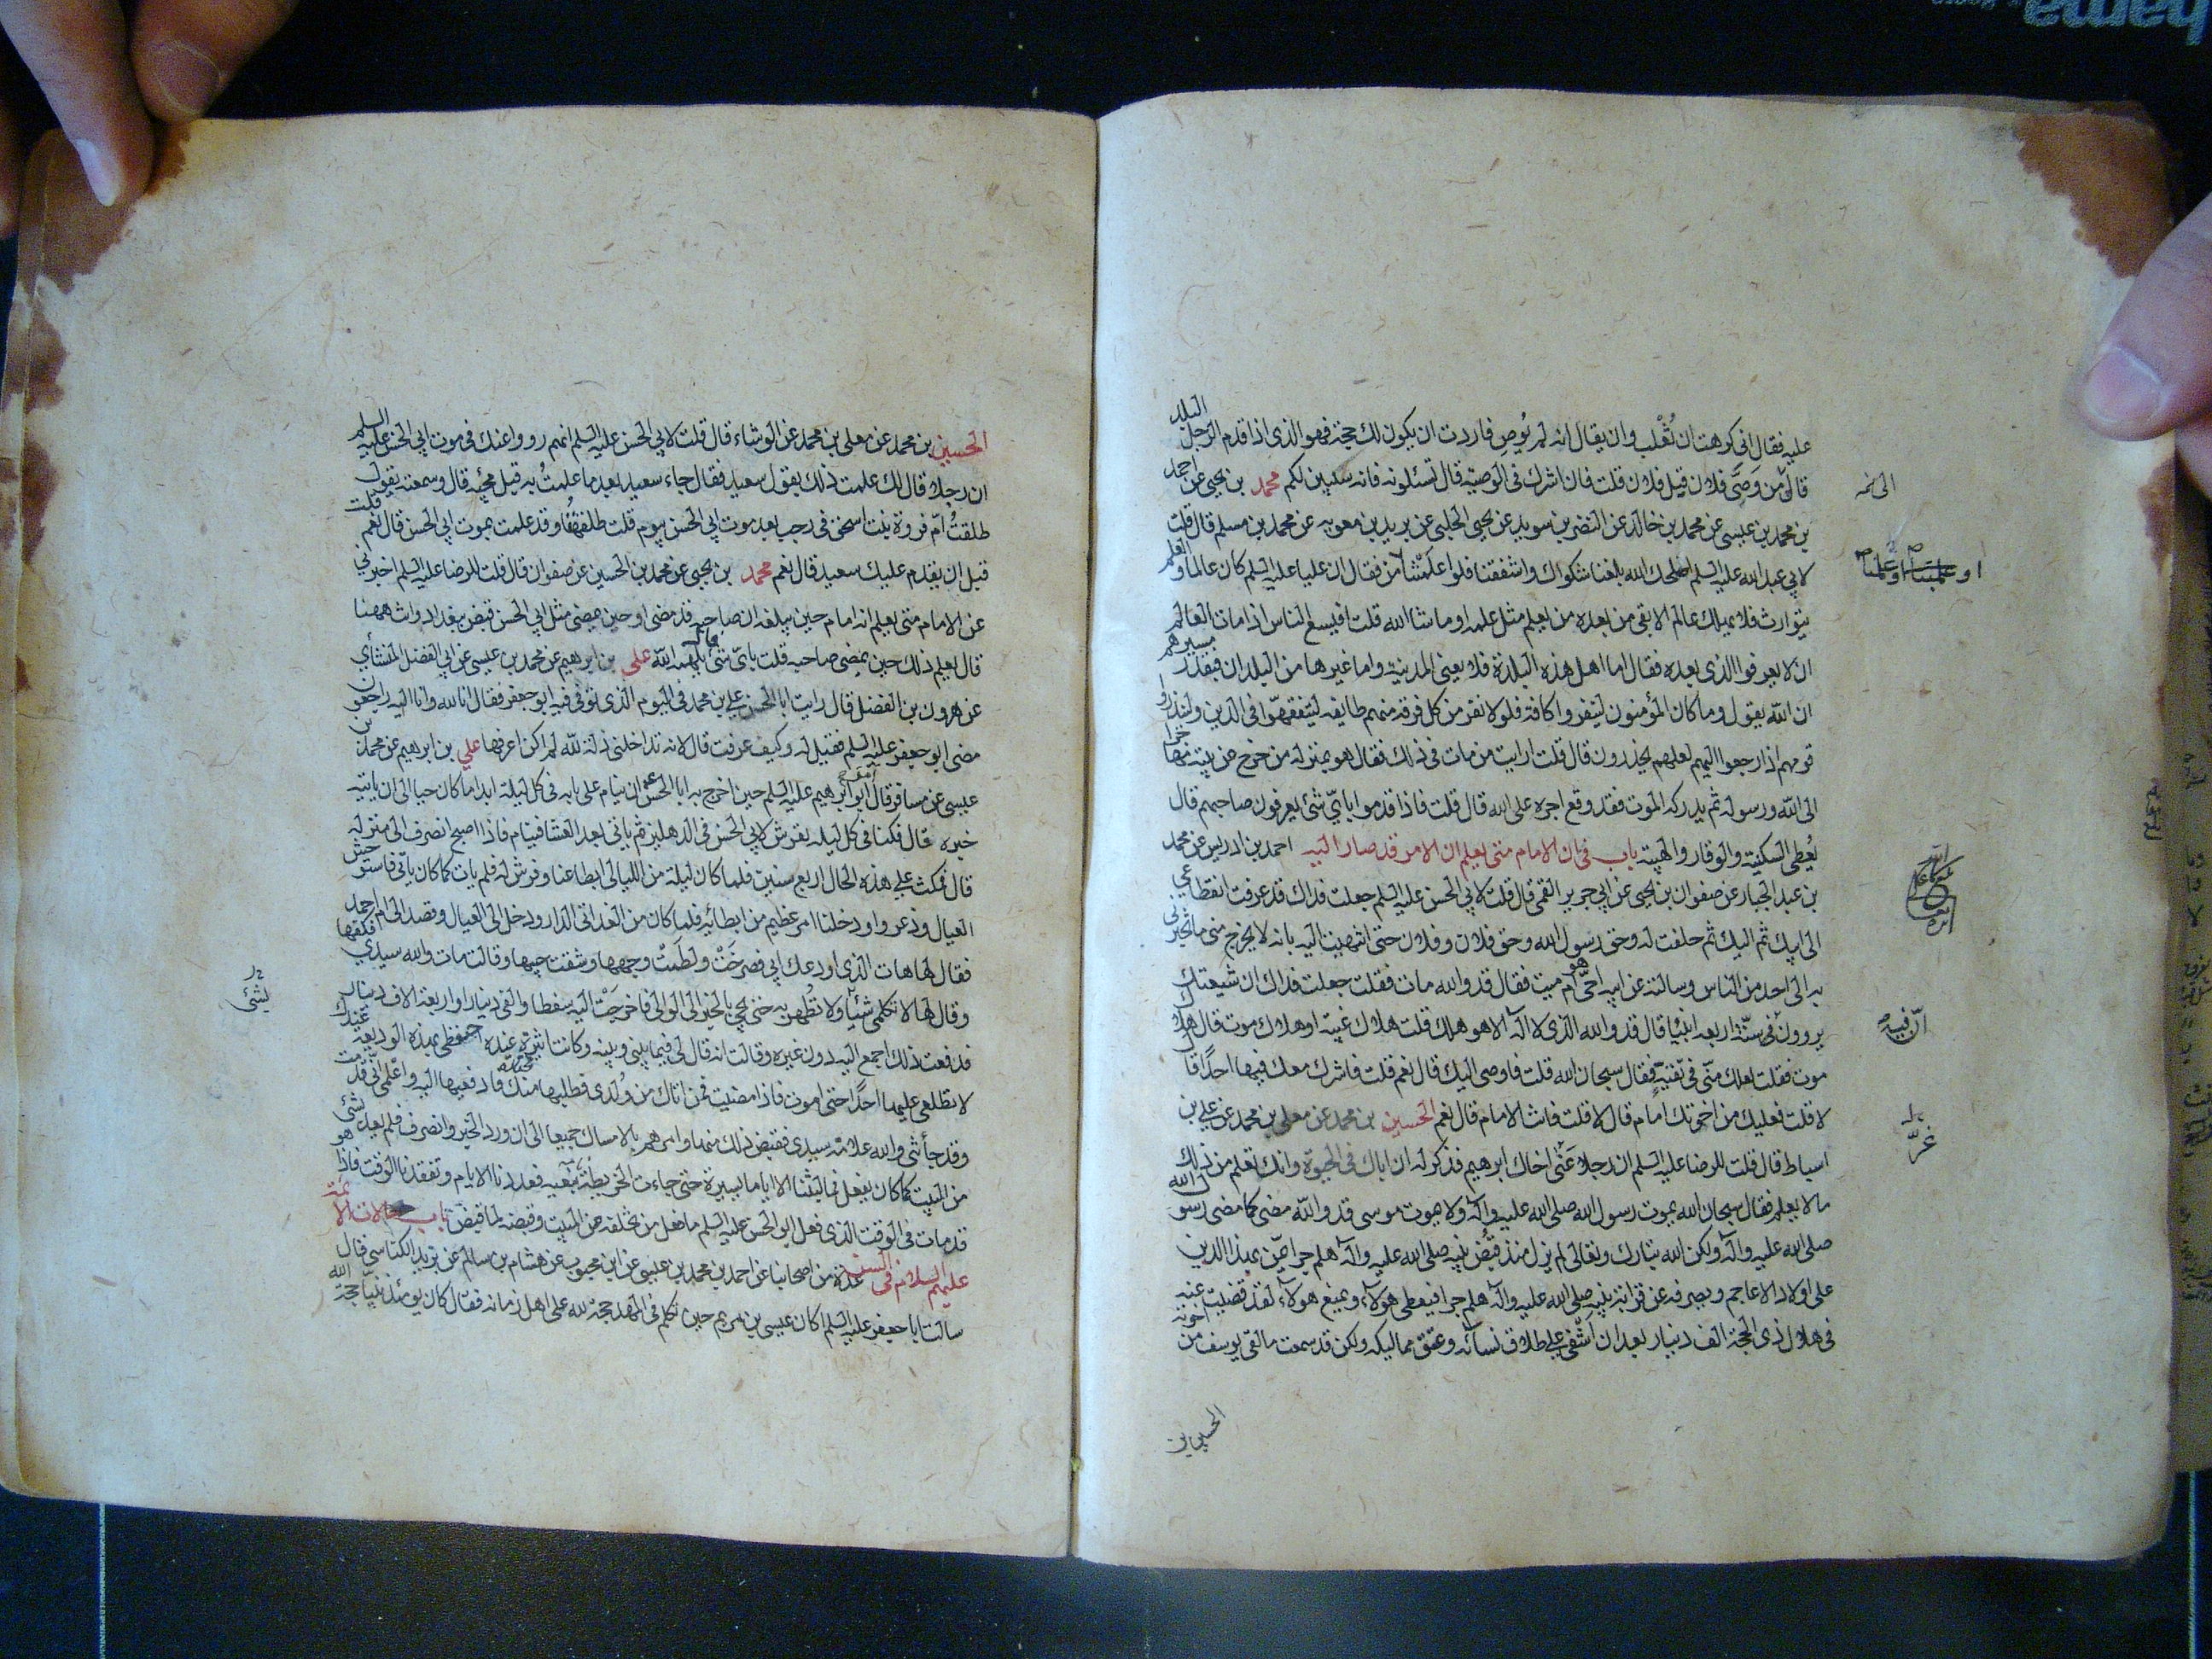 عليه فقال اني كرهت ان تُغْلب وان يقال انه لم يُوصِ فاردت ان يكون لك حجة فهو الذى اذا قدم الرجل البلد
قال من وَصىّ فلان قيل فلان قلت فان اشرك فى الوصية قال تسئلونه فانه سيبين لكم محمد بن يحيى عن احمد
بن محمد بن عيسى عن محمد بن خالد عن النضر بن سويد عن يحيى الحلبى عن بريد بن معوية عن محمد بن مسلم قال قلت
لابي عبد الله عليه السلم اصلحك الله بلغنا شكواك واشفقنا فلو اعلمتنا من فقال ان عليا عليه السلم كان عالما والعلم
يتوارث فلا يهلك عالم الا بقى من بعده من يعلم مثل علمه او ما شا الله قلت افيسع الناس اذا مات العالم
ان لا يعرفوا الذى بعده فقال اما اهل هذه البلدة فلا يعنى المدينة واما غيرها من البلدان فبقدر مسيرهم
ان الله يقول وما كان المؤمنون لينفروا كافة فلولا نفر من كل فرقة منهم طايفة ليتفقهوا فى الدين ولينذروا
قومهم اذا رجعوا اليهم لعلهم يحذرون قال قلت ارايت من مات فى ذلك فقال هو بمنزلة من خرج من بيته مهاجرا
الى الله ورسوله ثم يدركه الموت فقد وقع اجره على الله قال قلت فاذا قدموا باىّ شئ يعرفون صاحبهم قال
يُعطى السكينة والوقار والهيبة باب فى ان الامام متى يعلم ان الامر قد صار اليه احمد بن ادريس عن محمد
بن عبد الجبار عن صفوان بن يحيى عن ابي جرير القمى قال قلت لابي الحسن عليه السلم جعلت فداك قد عرفت انقطاعي
الى ابيك ثم اليك ثم حلفت له وحق رسول الله وحق فلان وفلان حتى انتهيت اليه بانه لا يخرج منى ما تخبرنى
به الى احد من الناس وسالته عن ابيه احىّ هو ام ميت فقال قد والله مات فقلت جعلت فداك ان شيعتك
يروون فى سنّة اربعة انبيا قال قد والله الذى لا اله الا هو هلك قلت هلاك غيبة او هلاك موت قال هلاك
موت فقلت لعلك منّى فى تقيةٍ فقال سبحان الله قلت فاوصى اليك قال نعم قلت فاشرك معك فيها احدًا قال
لا قلت فعليك من اخوتك امام قال لا قلت فانت الامام قال نعم الحسين بن محمد عن معلى بن محمد عن علي بن
اسباط قال قلت للرضا عليه السلم ان رجلا عَنَى اخاك ابرهيم فذكر له ان اباك فى الحيوة وانك تعلم من ذلك
ما لا يعلم فقال سبحان الله يموت رسول الله صلى الله عليه واله ولا يموت موسى قد والله مضى كما مضى رسول الله
صلى الله عليه واله ولكن الله تبارك وتعالى لم يزل منذ قبض نبيه صلى الله عليه واله هلم جرا يمنّ بهذا الدين
على اولاد الاعاجم ويصرفه عن قرابة نبيه صلى الله عليه واله هلم جرا فيعطى هولآء ويمنع هولآء لقد قضيت عنه
فى هلال ذى الحجة الف دينار بعد ان اَشْفى على طلاق نسآئه وعتق مماليكه ولكن قد سمعت ما لقى يوسف من اخوته
الحسين بن
الحسين بن محمد عن معلى بن محمد عن الوشاء قال قلت لابي الحسن عليه السلم انهم رووا عنك فى موت ابي الحسن عليه السلم
ان رجلا قال لك علمت ذلك بقول سعيد فقال جاء سعيد بعد ما علمتُ به قبل مجيئه قال وسمعته يقول
طلقتُ امّ فروة بنت اسحق فى رجب بعد موت ابي الحسن بيوم قلت طلقتها وقد علمت بموت ابي الحسن قال نعم قلت
قبل ان يقدم عليك سعيد قال نعم محمد بن يحيى عن محمد بن الحسين عن صفوان قال قلت للرضا عليه السلم اخبرني
عن الامام متى يعلم انه امام حين يبلغه ان صاحبه قد مضى او حين يمضى مثل ابي الحسن قبض ببغداد وانت ههنا
قال يعلم ذلك حين يمضى صاحبه قلت باىّ شئ قال يلهمه الله علي بن ابرهيم عن محمد بن عيسى عن ابي الفضل الشهبانى
عن هرون بن الفضل قال رايت ابا الحسن علي بن محمد فى اليوم الذى توفى فيه ابو جعفر فقال انا لله وانا اليه راجعون
مضى ابو جعفر عليه السلم فقيل له وكيف عرفت قال لانه تداخلنى ذلة لله لم اكن اعرفها علي بن ابرهيم عن محمد بن
عيسى عن مسافر قال امر ابو ابرهيم عليه السلم حين اخرج به ابا الحسن ان ينام على بابه فى كل ليلة ابدا ما كان حيا الى ان ياتيه
خبره قال فكنا فى كل ليلة نفرش لابي الحسن فى الدهليز ثم ياتى بعد العشا فينام فاذا اصبح انصرف الى منزله
قال فمكث على هذه الحال اربع سنين فلما كان ليلة من الليالى ابطا عنا وفرش له فلم يات كما كان ياتى فاستوحش
العيال وذعروا ودخلنا امر عظيم من ابطائه فلما كان من الغد اتى الدار ودخل الى العيال وقصد الى ام احمد
فقال لها هات الذى اودعك ابي فصرخَتْ ولَطَمَتْ وجهها وشقت جيبها وقالت مات والله سيدي فكفها
وقال لها لا تكلمى شيئا ولا تُظهريه حتى يجئ الخبر الى الوالى فاخرجَتْ اليه سفطا والفى دينار او اربعة الاف دينار
فدفعت ذلك اجمع اليه دون غيره وقالت انه قال لى فيما بينى وبينه وكانت اثيرة عنده احتفظى بهذه الوديعة عندك
لا تطلعى عليها احدًا حتى اموت فاذا مضيت فمن اتاك من وُلدى فطلبها منك فادفعيها اليه واعلمى انّى قد مت
وقد جأنى والله علامة سيدي فقبض ذلك منها وامرهم بالامساك جميعا الى ان ورد الخبر وانصرف فلم يعد لشئ
من المبيت كما كان يفعل فما لبثنا الا اياما يسيرة حتى جاءت الخريطة بنعيه فعددنا الايام وتفقدنا الوقت فاذا هو
قد مات فى الوقت الذى فعل ابو الحسن عليه السلم ما فعل من تخلفه عن المبيت وقبضه لما قبض باب حالات الائمة
عليهم السلام فى السن عدة من اصحابنا عن احمد بن محمد بن عيسى عن ابن محبوب عن هشام بن سالم عن يزيد الكناسى قال
سالت ابا جعفر عليه السلم اكان عيسى بن مريم حين تكلم فى المهد حجة لله على اهل زمانه فقال كان يومئذ نبيّا حجة الله